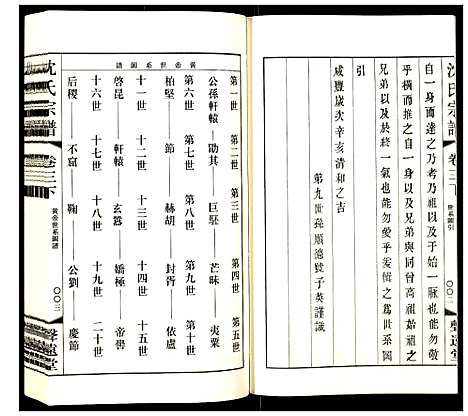 沈氏宗譜
卷三下
世系圖引
〇〇二
自一身而達之乃考及于始一脉也能勿
乎一身自一身以及兄弟與高祖始祖之
兄弟以及於終一氣也能勿愛乎爰慎之為世系圖
引
咸豐歲次辛亥清和之吉
第九世孫順德號子英謹識
黃帝世系圖譜
第一世 第二世 第三世 第四世 第五世
公孫軒轅 勖其 巨駓 芒昧 夷粟
第六世 第七世 第八世 第九世 第十世
柏堅 節 赫胡 封胥 依盧
十一世 十二世 十三世 十四世 十五世
啓昆 軒轅 玄囂 嬌極 帝嚳
十六世 十七世 十八世 十九世 二十世
后稷 不窋 鞠 公劉 慶節
沈氏宗譜
卷三下
黃帝世系圖譜
〇〇三